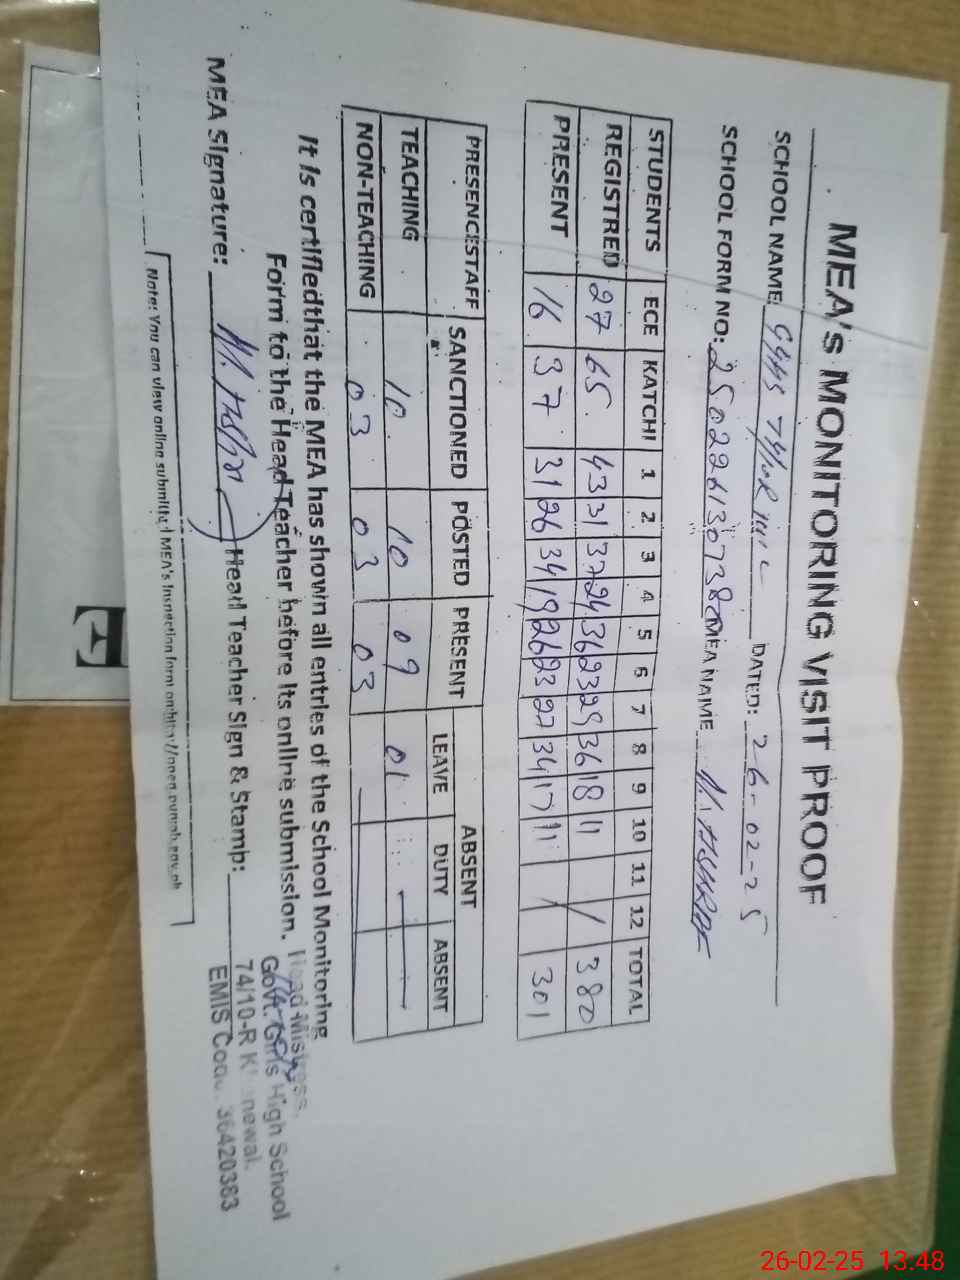 MEA's MONITORING VISIT PROOF
SCHOOL NAME GGHS 74/10R DATED: 26-02-25
SCHOOL FORM NO: MEA NAME M. ASHRAF
STUDENTS ECE KATCHI 1 2 3 4 5 6 7 8 9 10 11 12 TOTAL
REGISTRED 27 65 43 31 37 24 36 23 29 36 18 11 / 380
PRESENT 16 37 31 26 34 19 26 23 27 34 17 11 / 301
PRESENCESTAFF SANCTIONED POSTED PRESENT ABSENT
LEAVE DUTY ABSENT
TEACHING 10 10 09 01
NON-TEACHING 03 03 03
It is certifiedthat the MEA has shown all entries of the School Monitoring
Form to the Head Teacher before its online submission.
MEA Signature: Head Teacher Sign & Stamp:
Head Mistress,
Govt. Girls High School
74/10-R
EMIS Code. 36420383
Note: You can view online submitted MEA's Inspection form on:
26-02-25 13.48